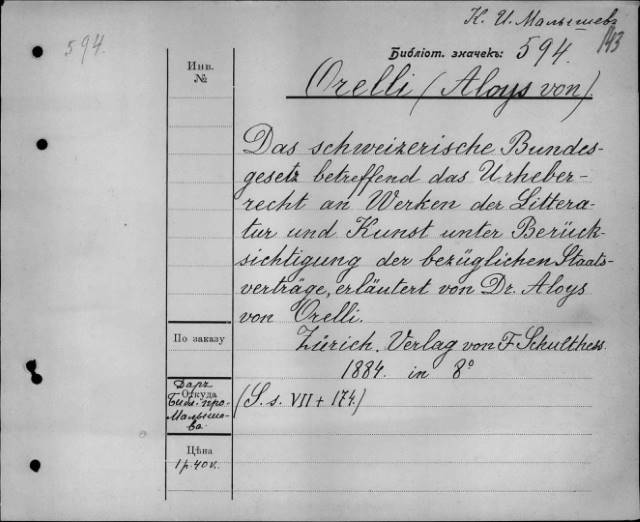 К. И. Малышевъ
143
594.
Библіот. значекъ: 594.
Инв.
№
Orelli (Aloys von)
Das schweizerische Bundes-
gesetz betreffend das Urheber-
recht an Werken der Littera-
tur und Kunst unter Berück-
sichtigung der bezüglichen Staats-
verträge, erläutert von Dr. Aloys
von Orelli.
По заказу
Zürich. Verlag von F. Schulthess.
1884. in 8°
Даръ
Откуда
Библ. про.
Малыше-
ва.
(S. s. VII + 174.)
Цѣна
1 р. 40 к.